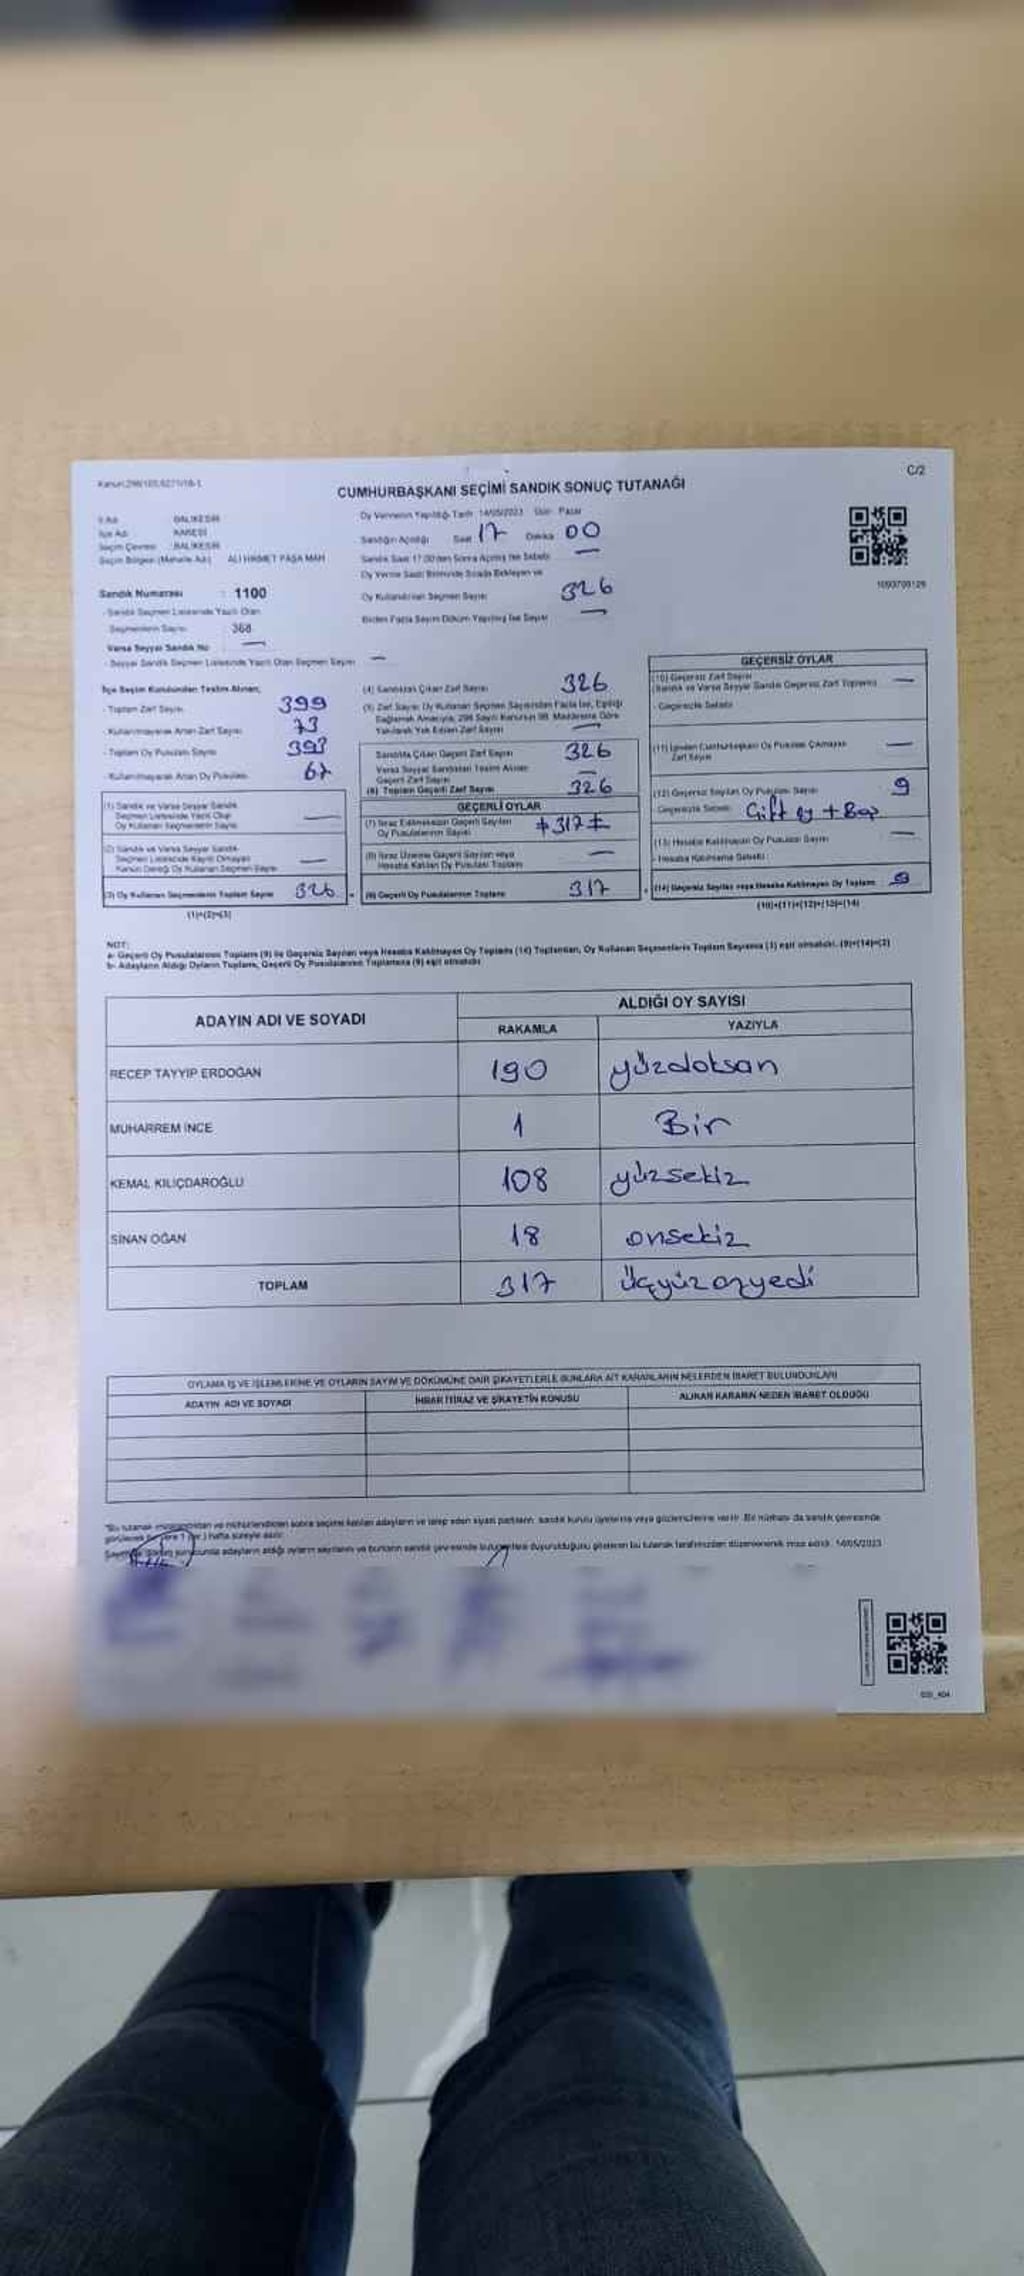 C/2
CUMHURBAŞKANI SEÇİMİ SANDIK SONUÇ TUTANAĞI
Oy Vermenin Yapıldığı Tarih 14/05/2023 Gün Pazar
İl Adı BALIKESİR
İlçe Adı KARESİ
Seçim Çevresi BALIKESİR
Seçim Bölgesi (Mahalle Adı) ALİ HİKMET PAŞA MAH
Sandığın Açıldığı Saat 17 Dakika 00
Sandık Saat 17.00'den Sonra Açılmış İse Sebebi —
Oy Verme Saati Bitiminde Sırada Bekleyen ve
Oy Kullandırılan Seçmen Sayısı 326
Birden Fazla Sayım Döküm Yapılmış İse Sayısı —
Sandık Numarası : 1100
- Sandık Seçmen Listesinde Yazılı Olan
Seçmenlerin Sayısı 368
Varsa Seyyar Sandık No —
- Seyyar Sandık Seçmen Listesinde Yazılı Olan Seçmen Sayısı —
İlçe Seçim Kurulundan Teslim Alınan;
- Toplam Zarf Sayısı 399
- Kullanılmayarak Artan Zarf Sayısı 73
- Toplam Oy Pusulası Sayısı 393
- Kullanılmayarak Artan Oy Pusulası 67
(1) Sandık ve Varsa Seyyar Sandık
Seçmen Listesinde Yazılı Olup
Oy Kullanan Seçmenlerin Sayısı —
(2) Sandık ve Varsa Seyyar Sandık
Seçmen Listesinde Kayıtlı Olmayan
Kanun Gereği Oy Kullanan Seçmen Sayısı —
(3) Oy Kullanan Seçmenlerin Toplam Sayısı 326
(1)+(2)=(3)
(4) Sandıktan Çıkan Zarf Sayısı 326
(5) Zarf Sayısı Oy Kullanan Seçmen Sayısından Fazla İse, Eşitliği
Sağlamak Amacıyla, 298 Sayılı Kanunun 98. Maddesine Göre
Yakılarak Yok Edilen Zarf Sayısı —
Sandıkta Çıkan Geçerli Zarf Sayısı 326
Varsa Seyyar Sandıktan Teslim Alınan
Geçerli Zarf Sayısı —
(6) Toplam Geçerli Zarf Sayısı 326
GEÇERLİ OYLAR
(7) İtiraz Edilmeksizin Geçerli Sayılan
Oy Pusulalarının Sayısı 317
(8) İtiraz Üzerine Geçerli Sayılan veya
Hesaba Katılan Oy Pusulası Toplamı —
(9) Geçerli Oy Pusulalarının Toplamı 317
GEÇERSİZ OYLAR
(10) Geçersiz Zarf Sayısı
(Sandık ve Varsa Seyyar Sandık Geçersiz Zarf Toplamı) —
- Geçersizlik Sebebi
(11) İçinden Cumhurbaşkanı Oy Pusulası Çıkmayan
Zarf Sayısı —
(12) Geçersiz Sayılan Oy Pusulası Sayısı 9
Geçersizlik Sebebi Çift oy + Boş
(13) Hesaba Katılmayan Oy Pusulası Sayısı —
- Hesaba Katılmama Sebebi
(14) Geçersiz Sayılan veya Hesaba Katılmayan Oy Toplamı 9
(10)+(11)+(12)+(13)=(14)
NOT:
a- Geçerli Oy Pusulalarının Toplamı (9) ile Geçersiz Sayılan veya Hesaba Katılmayan Oy Toplamı (14) Toplamları, Oy Kullanan Seçmenlerin Toplam Sayısına (3) eşit olmalıdır. (9)+(14)=(3)
b- Adayların Aldığı Oyların Toplamı, Geçerli Oy Pusulalarının Toplamına (9) eşit olmalıdır.
ADAYIN ADI VE SOYADI ALDIĞI OY SAYISI
RAKAMLA YAZIYLA
RECEP TAYYİP ERDOĞAN 190 yüzdoksan
MUHARREM İNCE 1 Bir
KEMAL KILIÇDAROĞLU 108 yüzsekiz
SİNAN OĞAN 18 onsekiz
TOPLAM 317 üçyüzonyedi
OYLAMA İŞ VE İŞLEMLERİNE VE OYLARIN SAYIM VE DÖKÜMÜNE DAİR ŞİKAYETLERLE BUNLARA AİT KARARLARIN NELERDEN İBARET BULUNDUKLARI
ADAYIN ADI VE SOYADI İHBAR İTİRAZ VE ŞİKAYETİN KONUSU ALINAN KARARIN NEDEN İBARET OLDUĞU